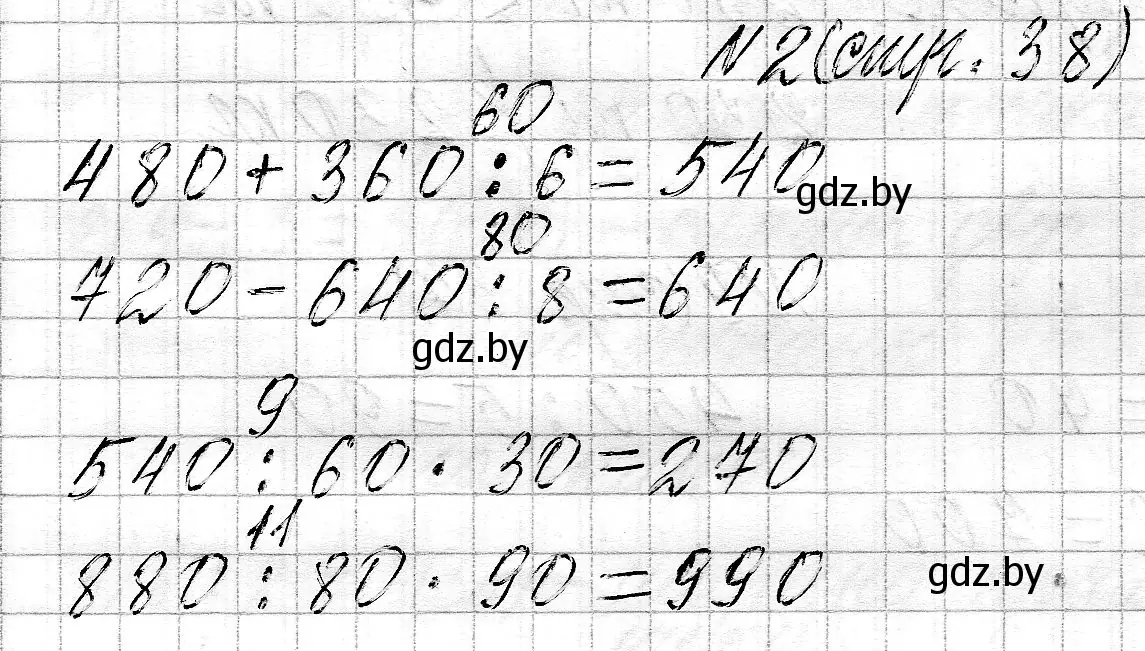 N 2 (стр. 38)
60
480 + 360 : 6 = 540
gdz.by
80
720 - 640 : 8 = 640
gdz.by
9
540 : 60 · 30 = 270
11
880 : 80 · 90 = 990
gdz.by